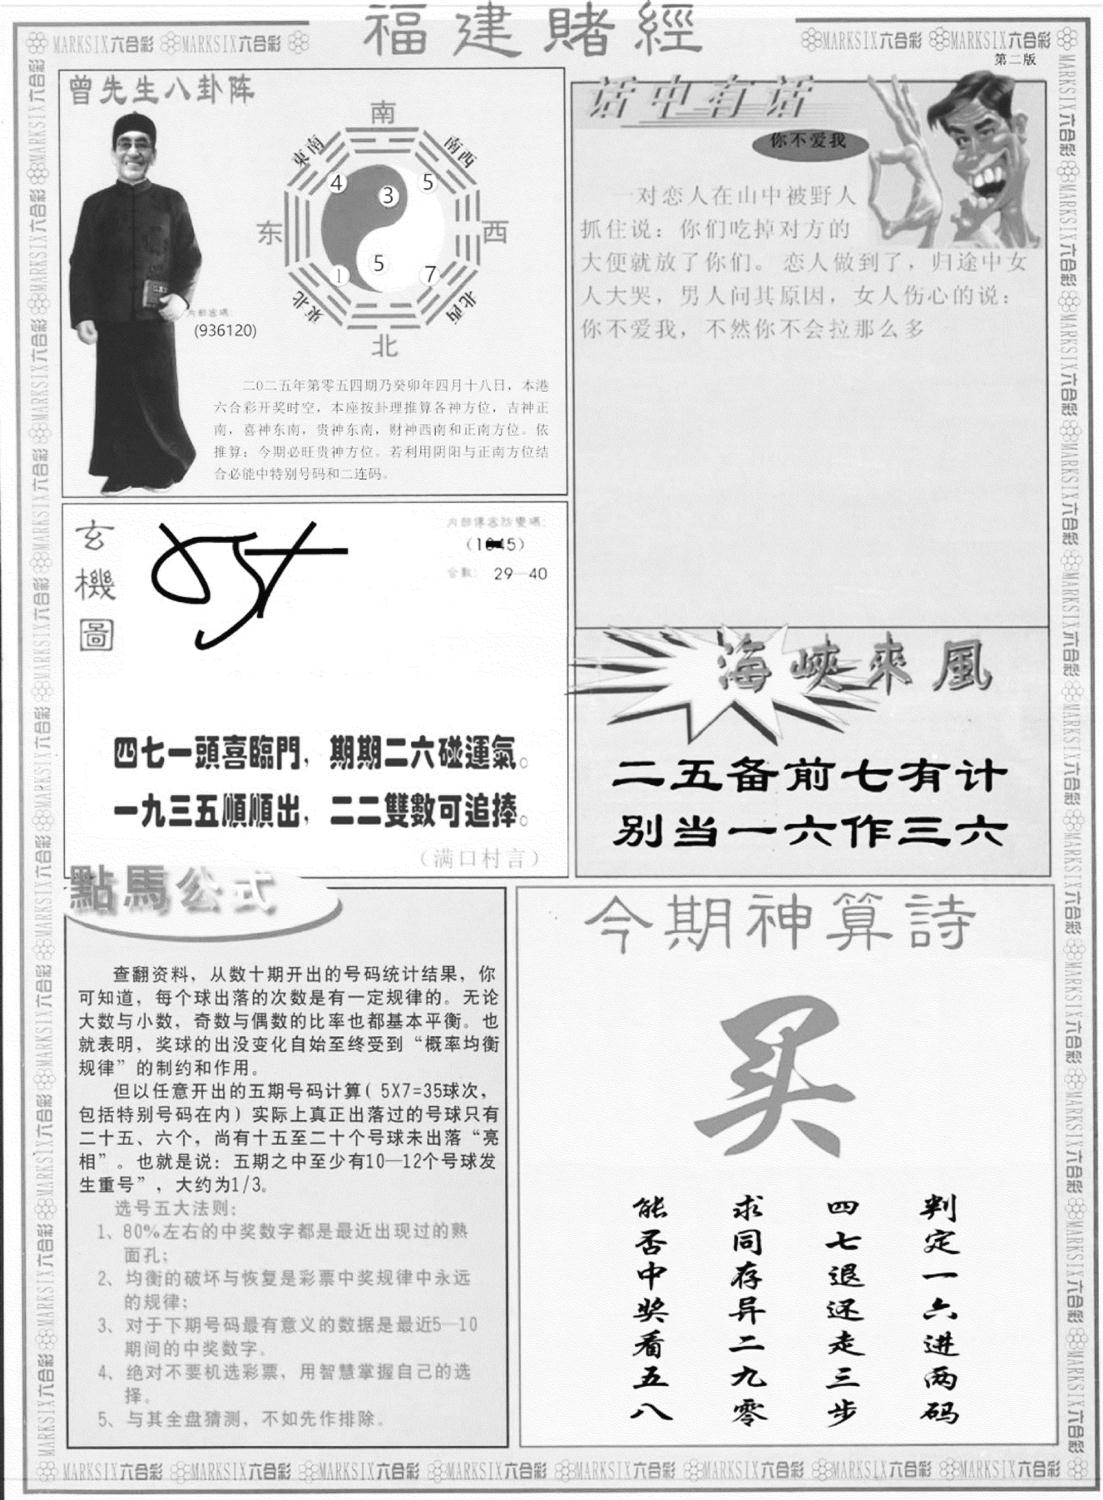 福建賭經
MARKSIX六合彩 MARKSIX六合彩
MARKSIX六合彩 MARKSIX六合彩
第二版
曾先生八卦阵
南
東南
南西
4
3
5
东
西
1
5
7
東北
北西
北
内部密碼:
(936120)
二0二五年第零五四期乃癸卯年四月十八日，本港
六合彩开奖时空，本座按卦理推算各神方位，吉神正
南，喜神东南，贵神东南，财神西南和正南方位。依
推算；今期必旺贵神方位。若利用阴阳与正南方位结
合必能中特别号码和二连码。
话中有话
你不爱我
一对恋人在山中被野人
抓住说：你们吃掉对方的
大便就放了你们。恋人做到了，归途中女
人大哭，男人问其原因，女人伤心的说：
你不爱我，不然你不会拉那么多
玄
機
圖
内部傳密防變碼:
合數: 29—40
四七一頭喜臨門，期期二六碰運氣。
一九三五順順出，二二雙數可追捧。
（满口村言）
海峽來風
二五备前七有计
别当一六作三六
點馬公式
查翻资料，从数十期开出的号码统计结果，你
可知道，每个球出落的次数是有一定规律的。无论
大数与小数，奇数与偶数的比率也都基本平衡。也
就表明，奖球的出没变化自始至终受到“概率均衡
规律”的制约和作用。
但以任意开出的五期号码计算( 5X7=35球次，
包括特别号码在内) 实际上真正出落过的号球只有
二十五、六个，尚有十五至二十个号球未出落“亮
相”。也就是说：五期之中至少有10—12个号球发
生重号”，大约为1/3。
选号五大法则：
1、80%左右的中奖数字都是最近出现过的熟
面孔；
2、均衡的破坏与恢复是彩票中奖规律中永远
的规律；
3、对于下期号码最有意义的数据是最近5—10
期间的中奖数字。
4、绝对不要机选彩票，用智慧掌握自己的选
择。
5、与其全盘猜测，不如先作排除。
今期神算詩
买
判定一六进两码
四七退还走三步
求同存异二九零
能否中奖看五八
MARKSIX六合彩 MARKSIX六合彩 MARKSIX六合彩 MARKSIX六合彩 MARKSIX六合彩 MARKSIX六合彩 MARKSIX六合彩 MARKSIX六合彩